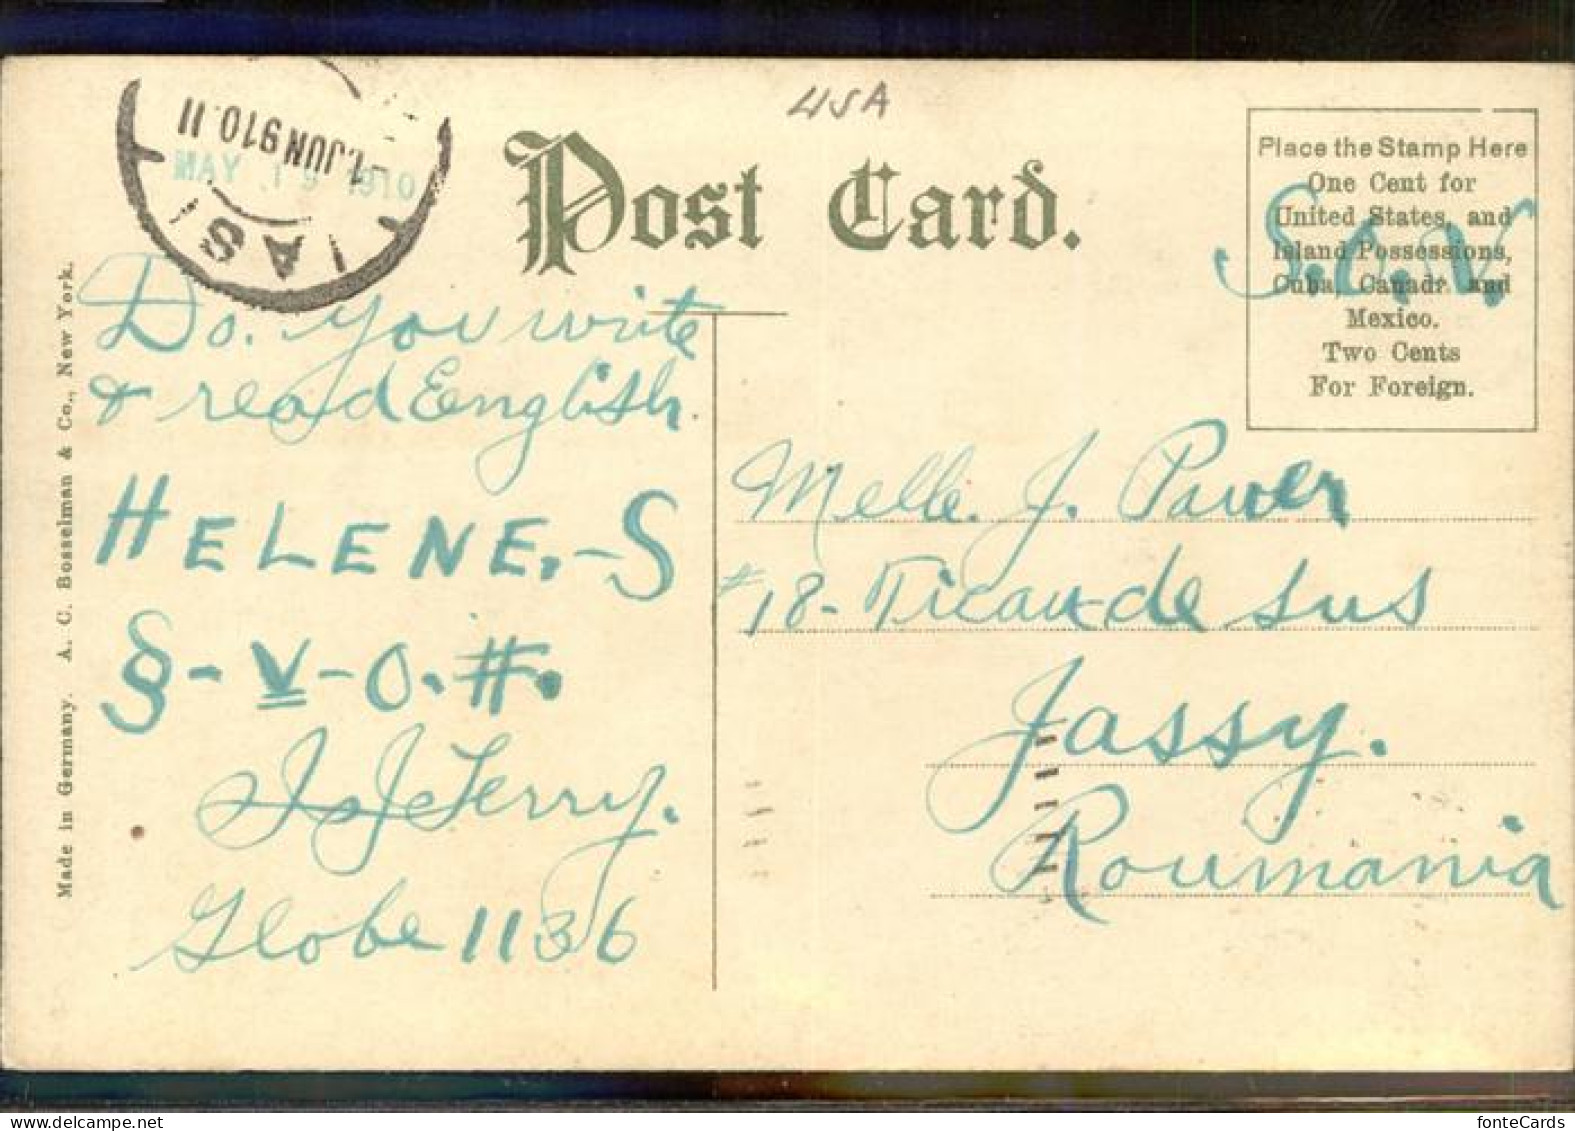 USA
Post Card.
Place the Stamp Here
One Cent for
United States, and
Island Possessions,
Cuba, Canada and
Mexico.
Two Cents
For Foreign.
IASI
1.JUN 910.11
MAY 19 1910
Do. you write
& read English.
HELENE.-S
§-V-O.#.
J Terry.
Globe 1136
Melle. J.
#18- Ticau-de sus
Jassy.
Roumania
Made in Germany. A. C. Bosselman & Co., New York.
fonteCards